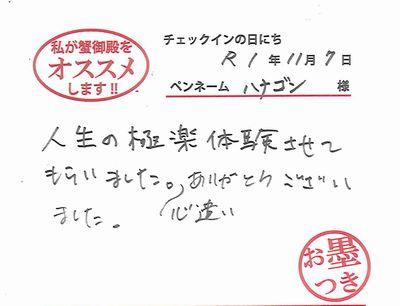 私が蟹御殿を
オススメ
します!!
チェックインの日にち
R1年11月7日
ペンネーム ハナゴン 様
人生の極楽体験させて
もらいました。ありがとうござい
ました。
心遣い
お墨
つき